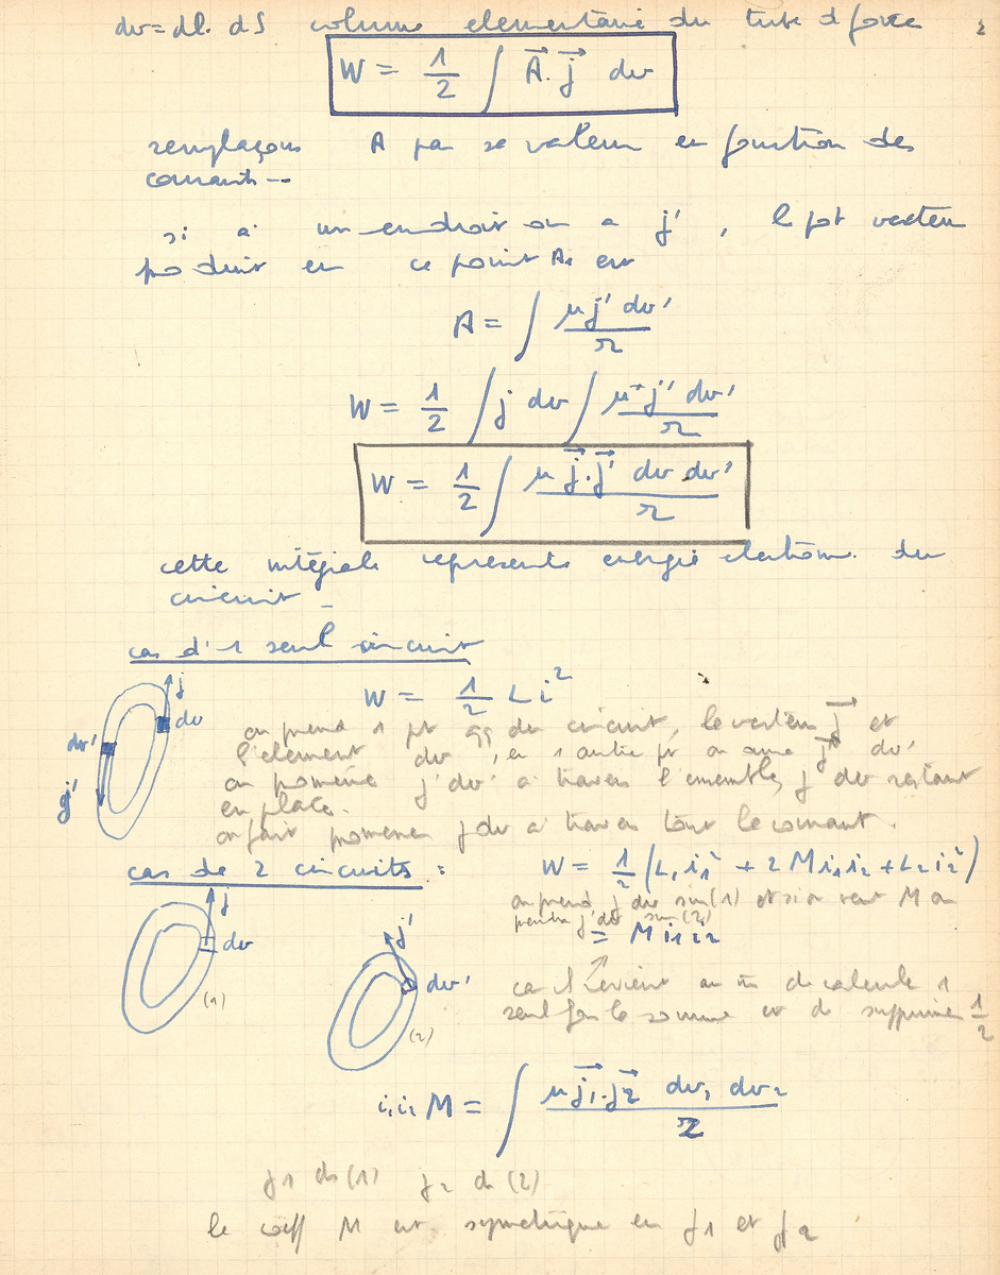 dv = dl. dS volume elementaire du tube d force
2
W = 1/2 ∫ A⃗. j⃗ dv
remplaçons A par sa valeur en fonction des
courants --
si a un endroit on a j' , le pot vecteur
produit en ce point A₁ est
A = ∫ μj' dv' / r
W = 1/2 ∫ j dv ∫ μ j' dv' / r
W = 1/2 ∫ μ j⃗. j⃗' dv dv' / r
cette intégrale represente energie electrom. du
circuit _
cas d' 1 seul circuit
W = 1/2 L i²
j
dv
dv'
j'
on prend 1 pt qq du circuit, le vecteur j⃗ et
l'element dv , en 1 autre pt on aura j⃗' dv'
on promene j' dv' a travers l'ensemble, j dv restant
en place.
on fait promener j dv a travers tout le courant.
cas de 2 circuits :
W = 1/2 (L₁ i₁² + 2 M i₁ i₂ + L₂ i₂²)
on prend j dv sur (1) et si on veut M on
prendra j' dv' sur (2)
= M i₁ i₂
j
dv
(1)
j'
dv'
(2)
ca revient au m de calculer 1
seul fois la somme et de supprimer 1/2
i₁ i₂ M = ∫ μ j⃗₁. j⃗₂ dv₁ dv₂ / r
j1 ds (1) j2 ds (2)
le coeff M est symetrique en j1 et j2